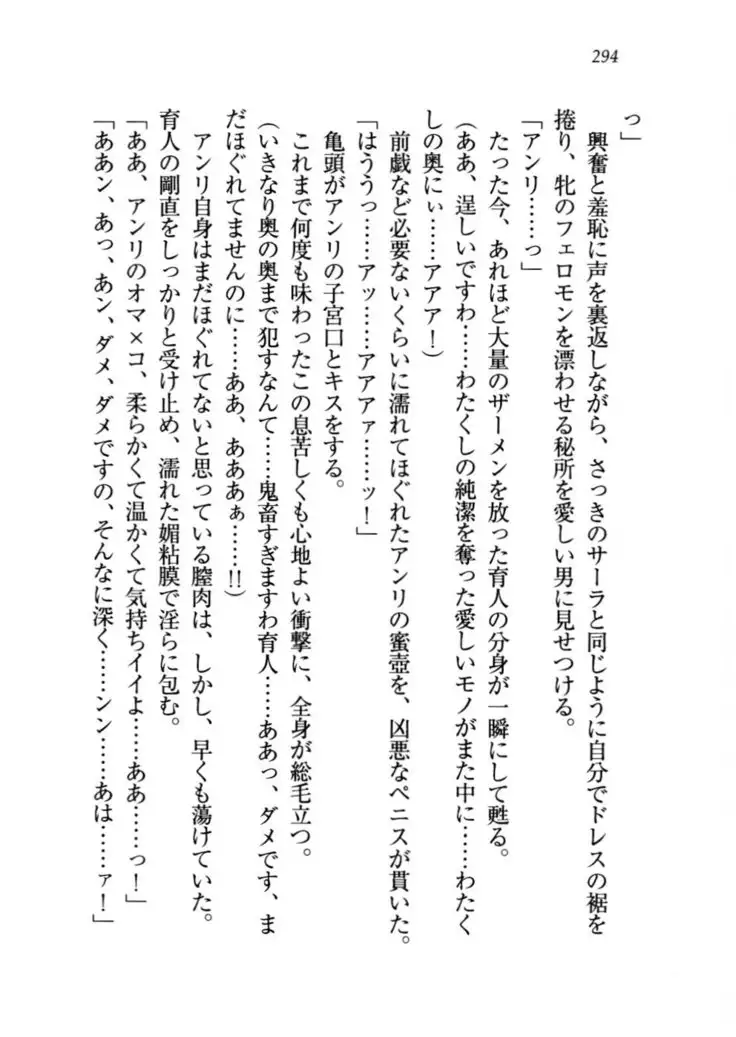 294
っ」
　興奮と羞恥に声を裏返しながら、さっきのサーラと同じように自分でドレスの裾を
捲り、牝のフェロモンを漂わせる秘所を愛しい男に見せつける。
「アンリ……っ」
　たった今、あれほど大量のザーメンを放った育人の分身が一瞬にして甦る。
（ああ、逞しいですわ……わたくしの純潔を奪った愛しいモノがまた中に……わたく
しの奥にぃ……アアア！）
　前戯など必要ないくらいに濡れてほぐれたアンリの蜜壺を、凶悪なペニスが貫いた。
「はううっ……アッ……アアアァ……ッ！」
　亀頭がアンリの子宮口とキスをする。
　これまで何度も味わったこの息苦しくも心地よい衝撃に、全身が総毛立つ。
（いきなり奥の奥まで犯すなんて……鬼畜すぎますわ育人……ああっ、ダメです、ま
だほぐれてませんのに……ああ、あああぁ……!!）
　アンリ自身はまだほぐれてないと思っている膣肉は、しかし、早くも蕩けていた。
育人の剛直をしっかりと受け止め、濡れた媚粘膜で淫らに包む。
「ああ、アンリのオマ×コ、柔らかくて温かくて気持ちイイよ……ああ……っ！」
「ああン、あっ、あン、ダメ、ダメですの、そんなに深く……ンン……あは……ァ！」